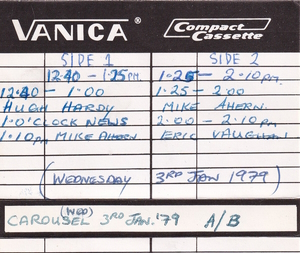 VANICA® Compact Cassette
SIDE 1 SIDE 2
12.40 – 1.25PM. 1.25 – 2.10PM.
12.40 – 1.00 1.25 – 2.00
HUGH HARDY MIKE AHERN.
1.O'CLOCK NEWS 2.00 – 2.10PM
1.10PM MIKE AHERN ERIC VAUGHAN
(WEDNESDAY 3RD JAN 1979)
(WED)
CAROUSEL 3RD JAN.'79 A/B